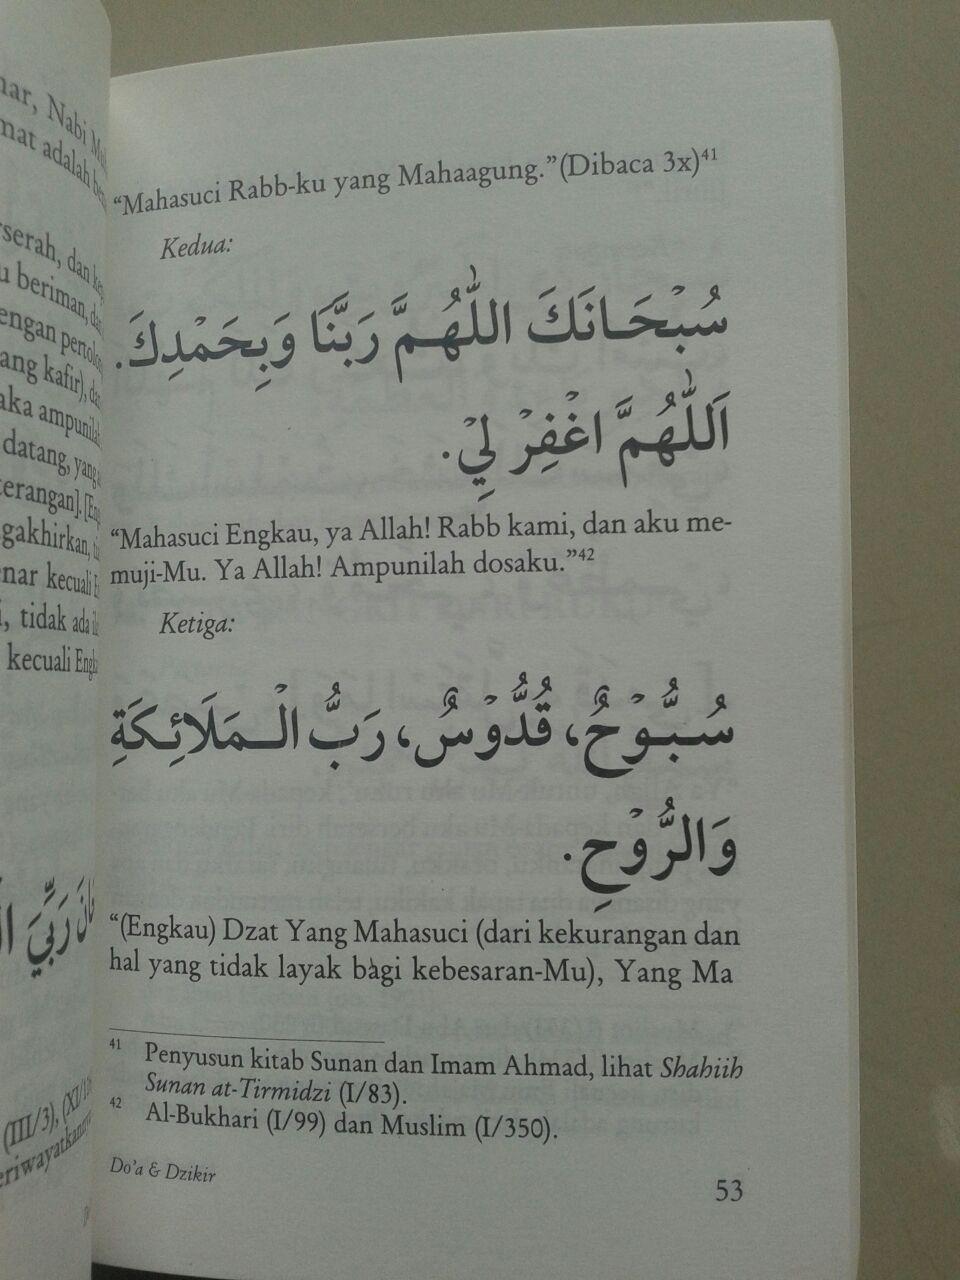 nar, Nabi
mat adalah
serah, dan
u beriman,
engan
ang kafir),
aka
datang, yang
terangan].
gakhirkan,
nar kecuali
, tidak ada
kecuali
رَبِّيَ
(III/3),
“Mahasuci Rabb-ku yang Mahaagung.”(Dibaca 3x)41
Kedua:
سُبْحَانَكَ اللّٰهُمَّ رَبَّنَا وَبِحَمْدِكَ.
اَللّٰهُمَّ اغْفِرْ لِيْ.
“Mahasuci Engkau, ya Allah! Rabb kami, dan aku me-
muji-Mu. Ya Allah! Ampunilah dosaku.”42
Ketiga:
سُبُّوْحٌ، قُدُّوْسٌ، رَبُّ الْمَلَائِكَةِ
وَالرُّوْحِ.
“(Engkau) Dzat Yang Mahasuci (dari kekurangan dan
hal yang tidak layak bagi kebesaran-Mu), Yang Ma
41 Penyusun kitab Sunan dan Imam Ahmad, lihat Shahiih
Sunan at-Tirmidzi (I/83).
42 Al-Bukhari (I/99) dan Muslim (I/350).
Do’a & Dzikir
53